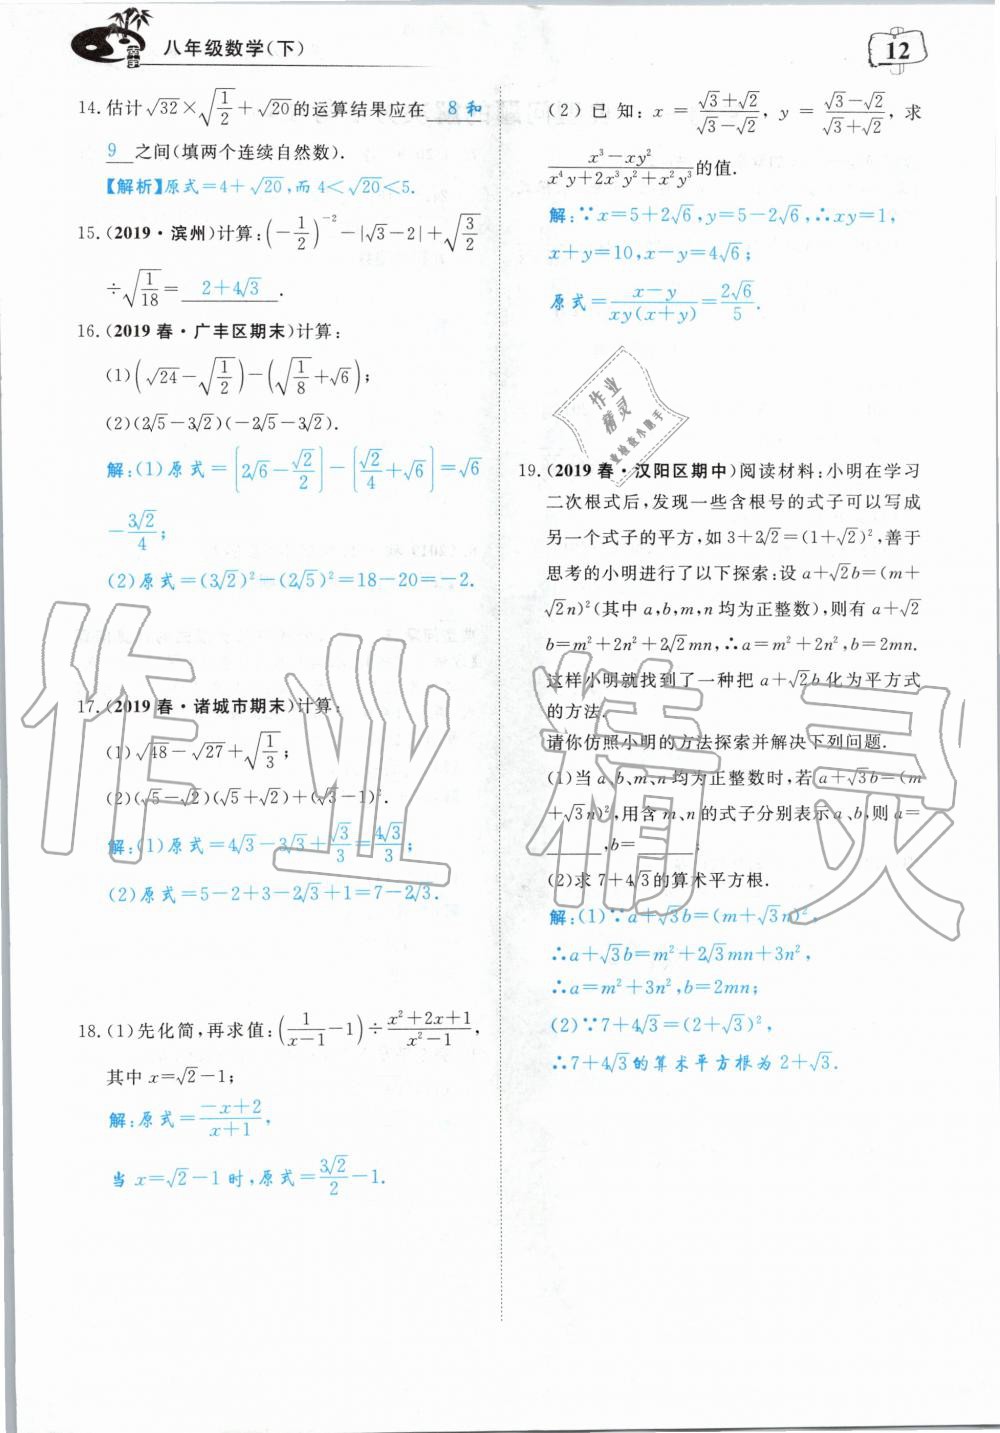 八年级数学(下)
12
14. 估计√32×√(1/2)+√20的运算结果应在 8 和
9 之间(填两个连续自然数).
【解析】原式=4+√20,而4<√20<5.
15. (2019·滨州)计算:(-1/2)⁻²-|√3-2|+√(3/2)
÷√(1/18)= 2+4√3 .
16. (2019春·广丰区期末)计算:
(1)(√24-√(1/2))-(√(1/8)+√6);
(2)(2√5-3√2)(-2√5-3√2).
解:(1)原式=[2√6-√2/2]-[√2/4+√6]=√6
-3√2/4;
(2)原式=(3√2)²-(2√5)²=18-20=-2.
17. (2019春·诸城市期末)计算:
(1)√48-√27+√(1/3);
(2)(√5-√2)(√5+√2)+(√3-1)².
解:(1)原式=4√3-3√3+√3/3=4√3/3;
(2)原式=5-2+3-2√3+1=7-2√3.
18. (1)先化简,再求值:(1/(x-1)-1)÷(x²+2x+1)/(x²-1),
其中x=√2-1;
解:原式=(-x+2)/(x+1),
当x=√2-1时,原式=3√2/2-1.
(2)已知:x=(√3+√2)/(√3-√2),y=(√3-√2)/(√3+√2),求
(x³-xy²)/(x⁴y+2x³y²+x²y³)的值.
解:∵x=5+2√6,y=5-2√6,∴xy=1,
x+y=10,x-y=4√6;
原式=(x-y)/(xy(x+y))=2√6/5.
作业
精灵
19. (2019春·汉阳区期中)阅读材料:小明在学习
二次根式后,发现一些含根号的式子可以写成
另一个式子的平方,如3+2√2=(1+√2)²,善于
思考的小明进行了以下探索:设a+√2b=(m+
√2n)²(其中a,b,m,n均为正整数),则有a+√2
b=m²+2n²+2√2mn,∴a=m²+2n²,b=2mn.
这样小明就找到了一种把a+√2b化为平方式
的方法.
请你仿照小明的方法探索并解决下列问题.
(1)当a、b、m、n均为正整数时,若a+√3b=(m
+√3n)²,用含m、n的式子分别表示a、b,则a=
______,b=______;
(2)求7+4√3的算术平方根.
解:(1)∵a+√3b=(m+√3n)²,
∴a+√3b=m²+2√3mn+3n²,
∴a=m²+3n²,b=2mn;
(2)∵7+4√3=(2+√3)²,
∴7+4√3的算术平方根为2+√3.
作业精灵